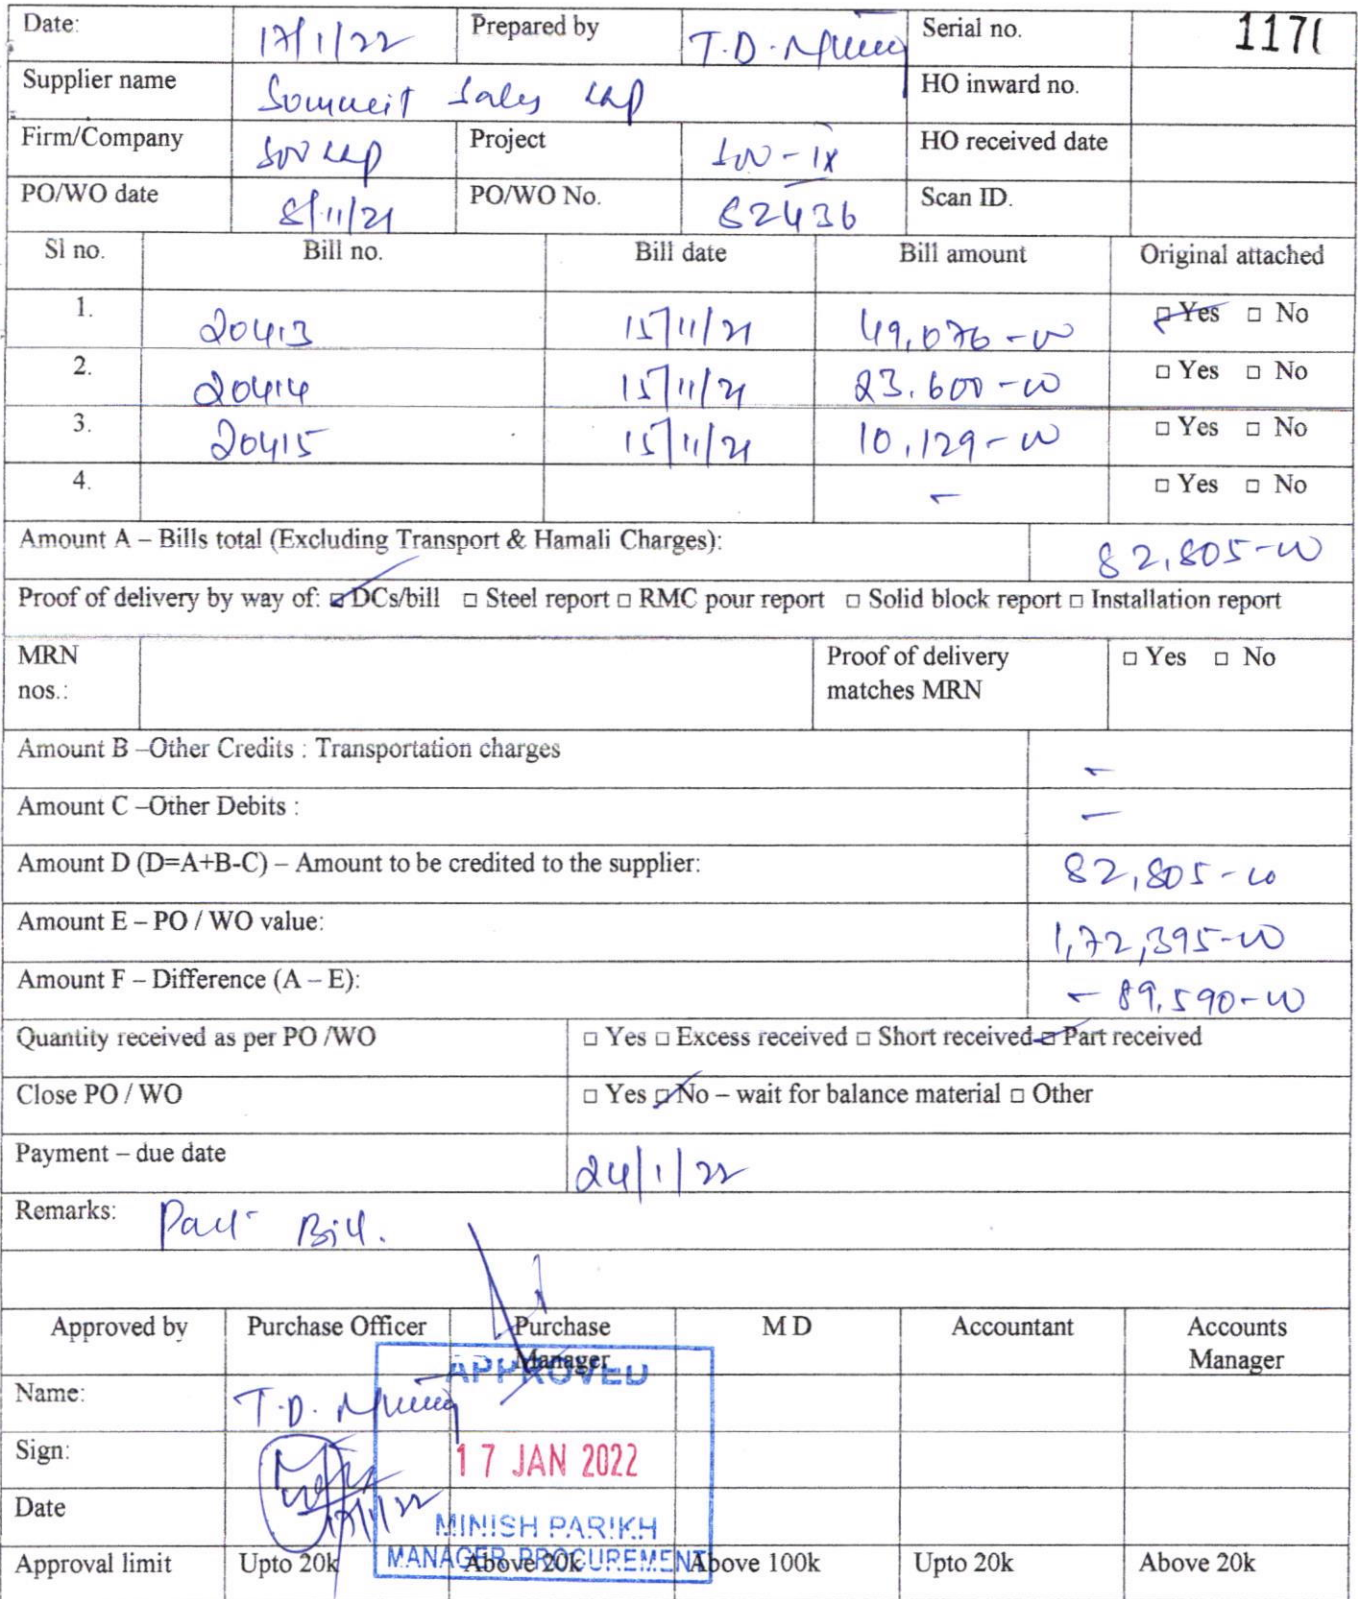 Date: 17/1/22 Prepared by T.D. Serial no. 1171
Supplier name Summit Sales LLP HO inward no.
Firm/Company SOV LLP Project SOV-IX HO received date
PO/WO date 8/11/21 PO/WO No. 82436 Scan ID.
Sl no. Bill no. Bill date Bill amount Original attached
1. 20413 15/11/21 49,076-00 □ Yes □ No
2. 20414 15/11/21 23,600-00 □ Yes □ No
3. 20415 15/11/21 10,129-00 □ Yes □ No
4. - □ Yes □ No
Amount A – Bills total (Excluding Transport & Hamali Charges): 82,805-00
Proof of delivery by way of: ☑ DCs/bill □ Steel report □ RMC pour report □ Solid block report □ Installation report
MRN nos.: Proof of delivery matches MRN □ Yes □ No
Amount B –Other Credits : Transportation charges -
Amount C –Other Debits : -
Amount D (D=A+B-C) – Amount to be credited to the supplier: 82,805-00
Amount E – PO / WO value: 1,72,395-00
Amount F – Difference (A – E): - 89,590-00
Quantity received as per PO /WO □ Yes □ Excess received □ Short received ☑ Part received
Close PO / WO □ Yes ☑ No – wait for balance material □ Other
Payment – due date 24/1/22
Remarks: Part Bill.
Approved by Purchase Officer Purchase Manager M D Accountant Accounts Manager
APPROVED
Name: T.D.
Sign: 17 JAN 2022
Date 17/1/22 MINISH PARIKH
MANAGER PROCUREMENT
Approval limit Upto 20k Above 20k Above 100k Upto 20k Above 20k